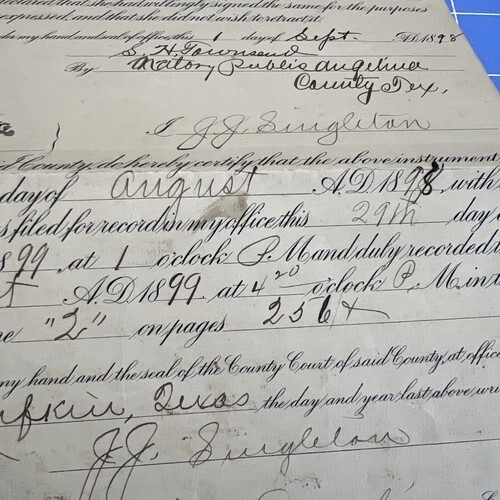 she had willingly signed the same for the purposes
expressed, and that she did not wish to retract it.
my hand and seal of office, this 1 day of Sept. A.D. 1898
S. H. Townsend
By Notary Public Angelina
County Tex.
I J. J. Singleton
County, do hereby certify that the above instrument
day of August A.D. 1898, with
filed for record in my office this 29th day
99, at 1 o'clock P. M and duly recorded
A.D. 1899 at 4 20 o'clock P. M in
"2" on pages 256 +
my hand and the seal of the County Court of said County, at office
ufkin, Texas the day and year last above
J. J. Singleton